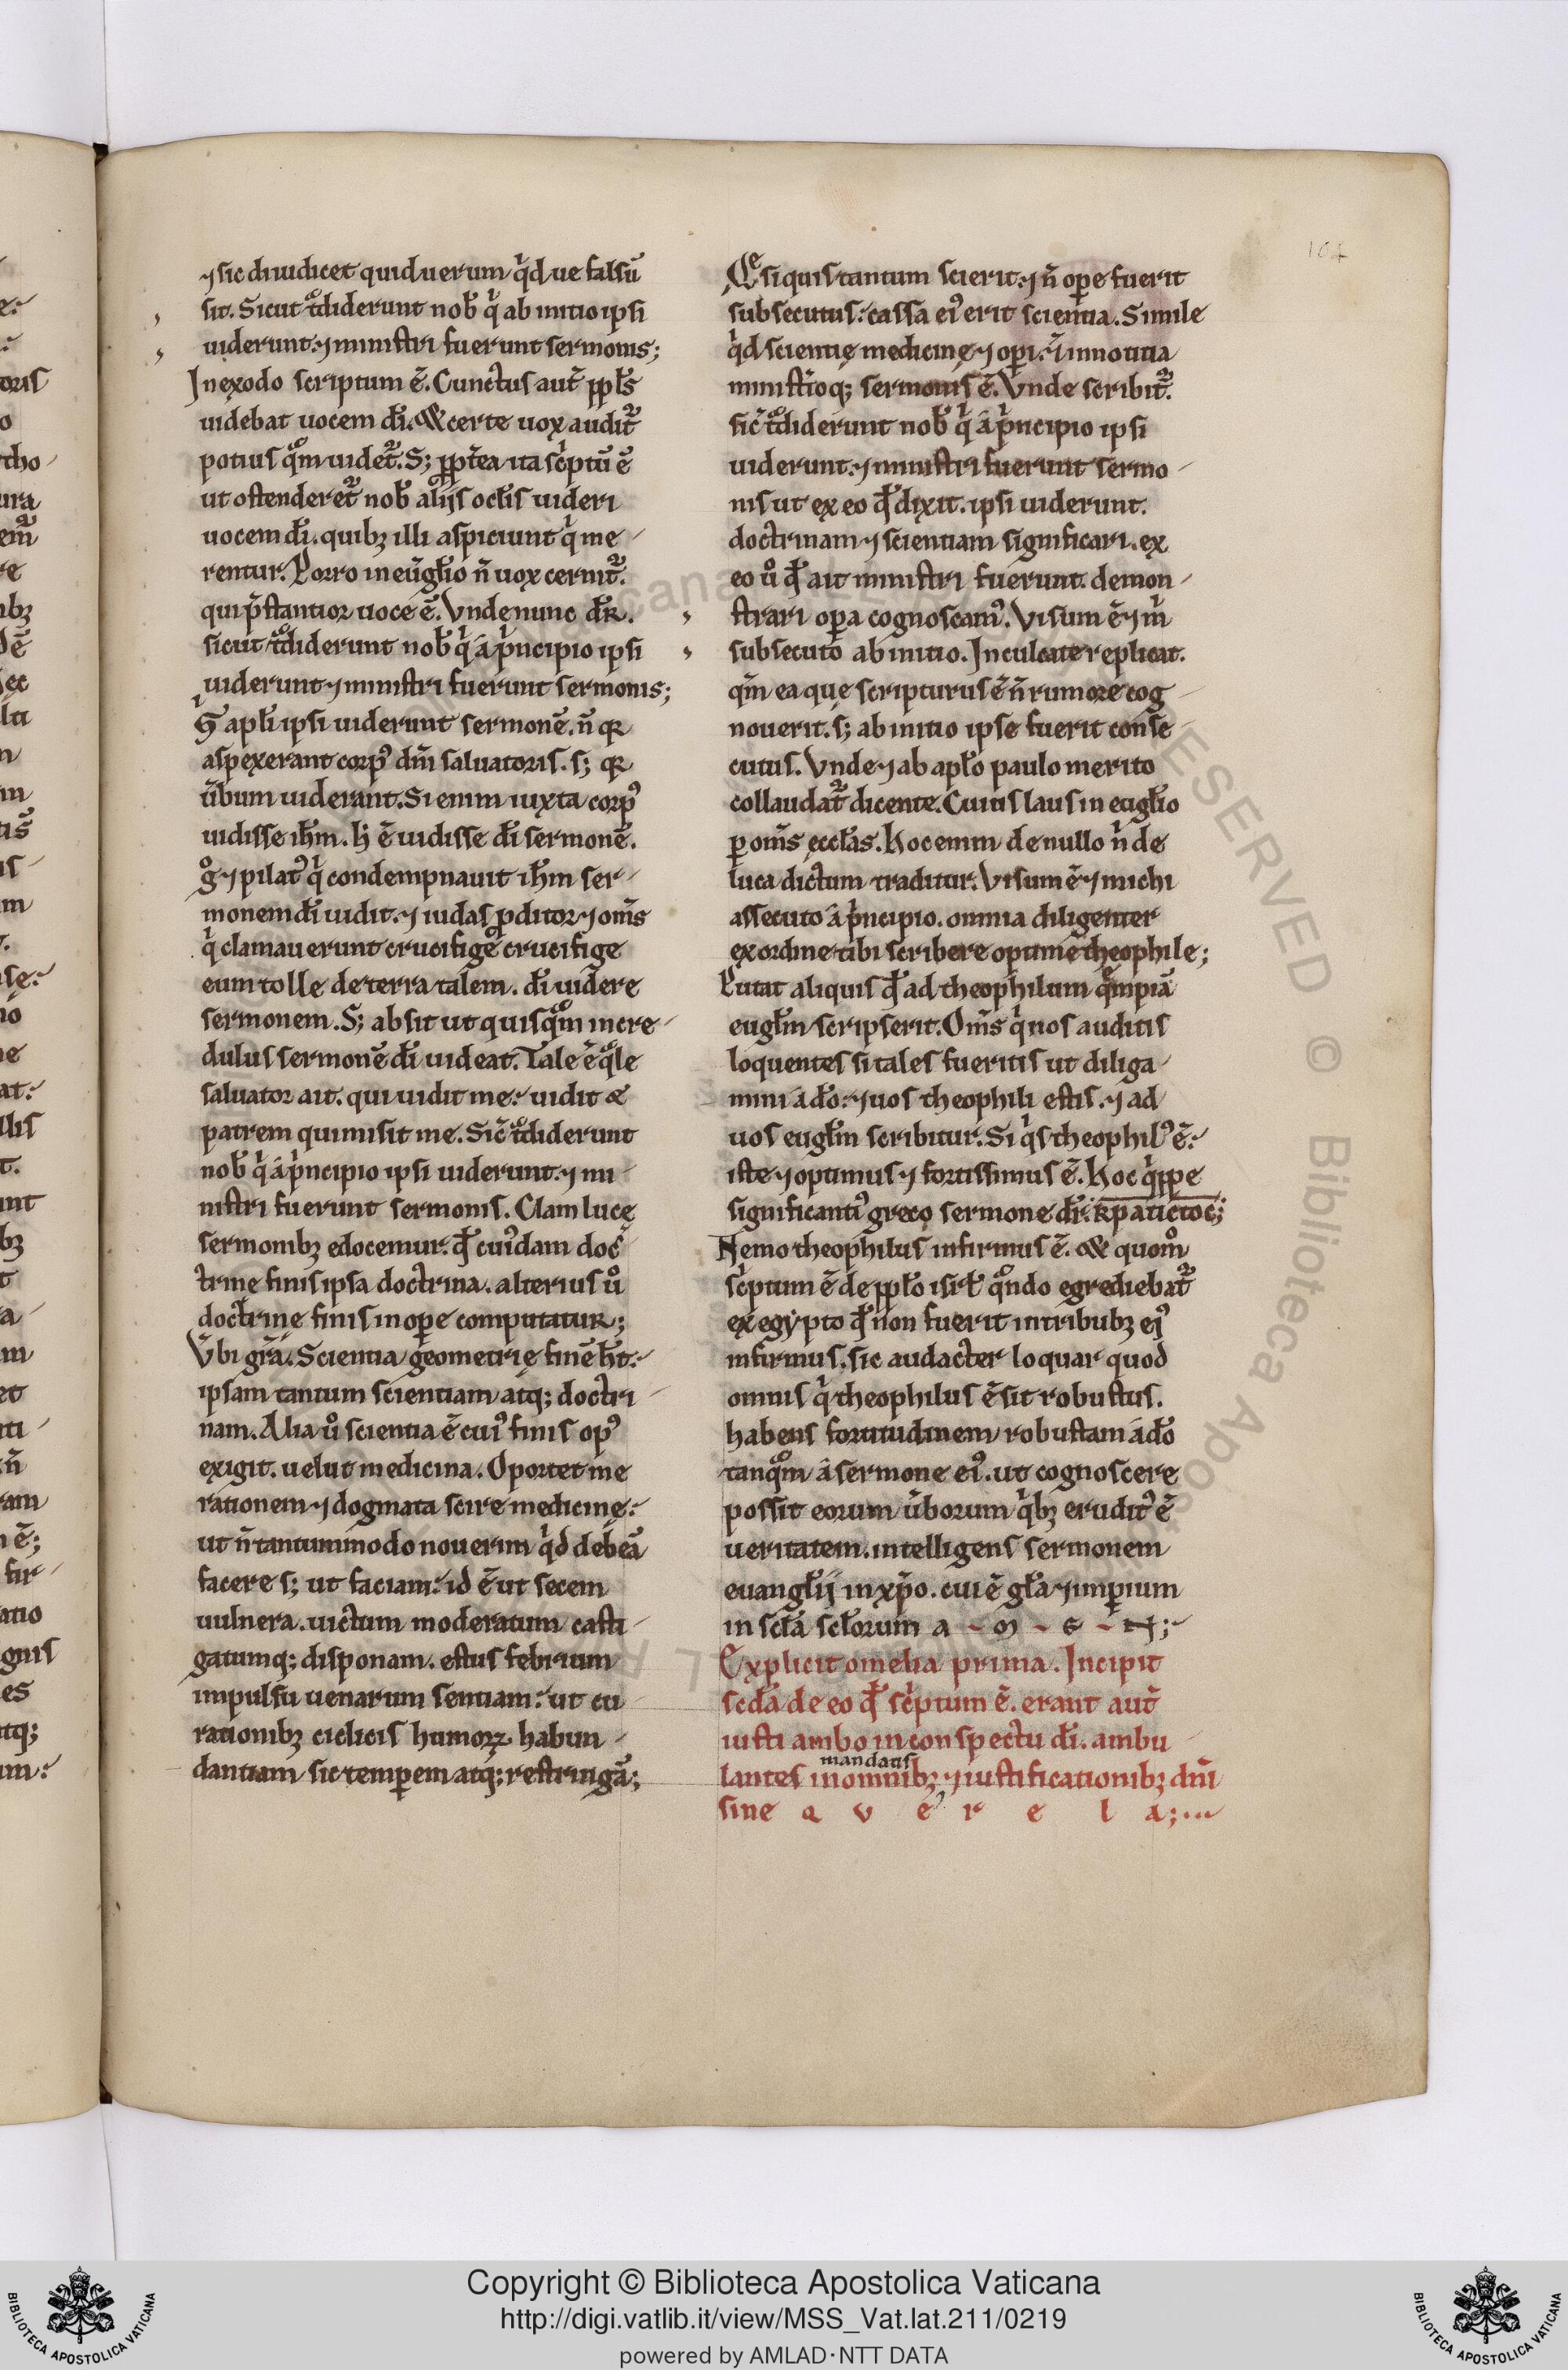 ⁊ sic diiudicet quid uerum qͥd ue falsū
sit. Sicut tͦdiderunt nob̄ qͥ ab initio ipsi
uiderunt. ⁊ ministri fuerunt sermonis;
In exodo scriptum ē. Cunctus aut̄ ppl̄s
uidebat uocem dī. & certe uox audit̄
potius qͦm uidet̄. S; ppt̄ea ita scͥptū ē
ut ostenderet̄ nob̄ alijs ocl̄is uideri
uocem dī. quibꝫ illi aspiciunt qͥ me
rentur. Porro in eūgl̄io n̄ uox cernit̄.
qui p̄stantior uoce ē. Vnde nunc dr̄.
sicut tͦdiderunt nob̄ qͥ a pͥncipio ipsi
uiderunt ⁊ ministri fuerunt sermonis;
G apl̄i ipsi uiderunt sermonē. n̄ qꝛ
aspexerant corpꝰ dn̄i saluatoris. s; qꝛ
ūbum uiderant. Si enim iuxta corpꝰ
uidisse ihm̄. h̄ ē uidisse dī sermonē.
gͦ ⁊ pilatꝰ qͥ condempnauit ihm̄ ser
monem dī uidit. ⁊ iudas ꝓditor ⁊ om̄s
qͥ clamauerunt crucifige crucifige
eum tolle de terra talem. dī uidere
sermonem. S; absit ut quisqͦm incre
dulus sermonē dī uideat. Tale ē qͦle
saluator ait. qui uidit me. uidit &
patrem qui misit me. Sic̄ tͦdiderunt
nob̄ qͥ a pͥncipio ipsi uiderunt. ⁊ mi
nistri fuerunt sermonis. Clam lucę
sermonibꝫ edocemur. qđ cuiꝰdam doc
trinę finis ipsa doctrina. alterius uͦ
doctrinę finis in oꝑe computatur;
Vbi grā. Scientia geometrię finē h̄t.
ipsam tantum scientiam atq; doctri
nam. Alia uͦ scientia ē cuiꝰ finis opꝰ
exigit. uelut medicina. Oportet me
rationem ⁊ dogmata scire medicinę.
ut n̄ tantummodo nouerim qͥd debeā
facere s; ut faciam. id ē ut secem
uulnera. uictum moderatum casti
gatumq; disponam. estus febrium
impulsu uenarum sentiam. ut cu
rationibꝫ ciclicis humorꝝ habun
dantiam sic temꝑem atq; restringā;
Qe si quis tantum scierit. ⁊ n̄ oꝑe fuerit
subsecutus. cassa eiꝰ erit scientia. Simile
qͥd scientię medicinę ⁊ oꝑi. ⁊ in notitia
ministͥoq; sermonis ē. Vnde scribit̄.
sic̄ tͦdiderunt nob̄ qͥ a pͥncipio ipsi
uiderunt. ⁊ ministri fuerunt sermo
nis ut ex eo qđ dixit. ipsi uiderunt.
doctrinam ⁊ scientiam significari. ex
eo uͦ qđ ait ministri fuerunt. demon
strari oꝑa cognoscamꝰ. Visum ē ⁊ mͥ
subsecuto ab initio. Inculcate replicat.
qm̄ ea que scripturus ē n̄ rumore cog
nouerit. s; ab initio ipse fuerit conse
cutus. Vnde ⁊ ab apl̄o paulo merito
collaudat̄ dicente. Cuius laus in eugl̄io
ꝑ om̄s ęccl̄as. Hoc enim de nullo nͥ de
luca dictum traditur. Visum ē ⁊ michi
assecuto a pͥncipio. omnia diligenter
ex ordine tibi scribere optime theophile;
Putat aliquis qđ ad theophilum qͦmpiā
eugl̄m scripserit. Om̄s qͥ nos auditis
loquentes si tales fueritis ut diliga
mini a dō. ⁊ uos theophili estis. ⁊ ad
uos eugl̄m scribitur. Si qͥs theophilꝰ ē.
iste ⁊ optimus ⁊ fortissimus ē. Hoc qͥppe
significantiꝰ greco sermone dr̄. kpatictoc;
Nemo theophilus infirmus ē. & quomͦ
scͥptum ē de ppl̄o isrl̄ qͦndo egrediebat̄
ex egypto qđ non fuerit in tribubꝫ eiꝰ
infirmus. sic audacter loquar quod
omnis qͥ theophilus ē sit robustus.
habens fortitudinem robustam a dō
tanqͦm a sermone eiꝰ. ut cognoscere
possit eorum ūborum qͥbꝫ eruditꝰ ē
ueritatem. intelligens sermonem
euangl̄ij in xp̄o. cui ē gl̄a ⁊ imꝑium
in scl̄a scl̄orum a - m - e - n;
Explicit omelia prima. Incipit
scd̄a de eo qđ scͥptum ē. erant aut̄
iusti ambo in conspectu dī. ambu
mandatis
lantes in omnibꝫ ⁊ iustificationibꝫ dn̄i
sine q v e r e l a;...
Copyright © Biblioteca Apostolica Vaticana
http://digi.vatlib.it/view/MSS_Vat.lat.211/0219
powered by AMLAD·NTT DATA
BIBLIOTECA APOSTOLICA VATICANA
BIBLIOTECA APOSTOLICA VATICANA